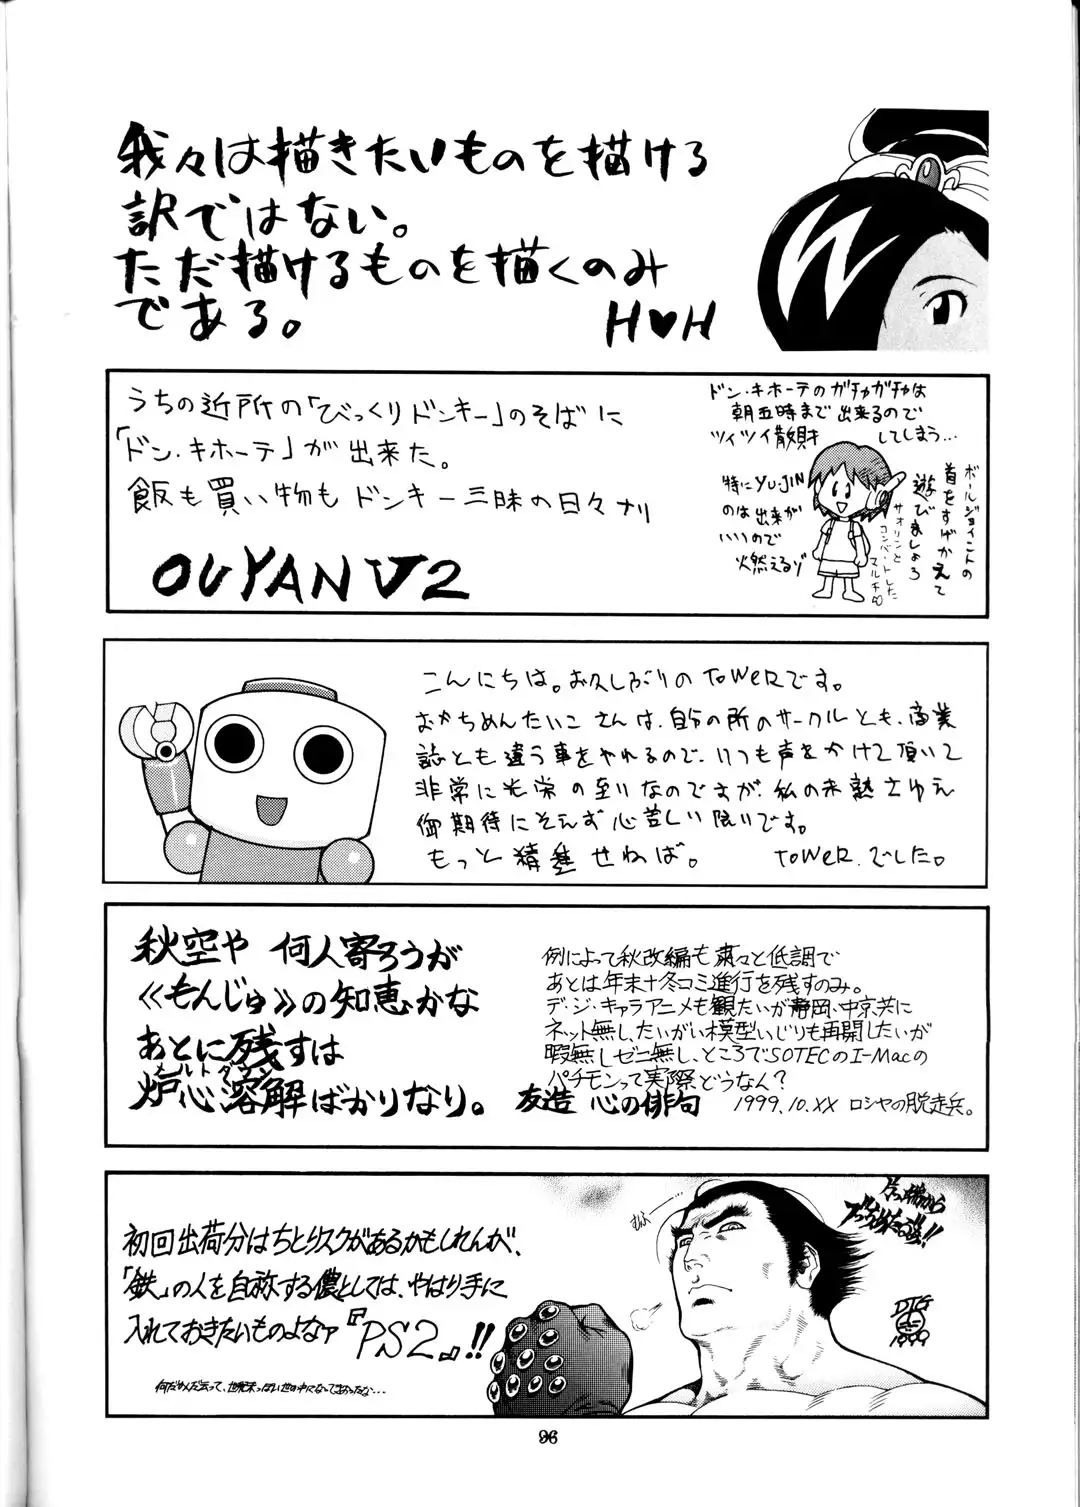 我々は描きたいものを描ける
訳ではない。
ただ描けるものを描くのみ
である。
H♥H
うちの近所の「びっくりドンキー」のそばに
「ドン・キホーテ」が出来た。
飯も買い物もドンキー三昧の日々ナリ
OUYANV2
ドン・キホーテのガチャガチャは
朝五時まで出来るので
ツイツイ散財してしまう…
特にYUJIN
のは出来が
いいので
火燃えるゾ
ボールジョイントの
首をすげかえて
遊びましょう
サオリンと
コンバートした
マルチ
こんにちは。お久しぶりのToWeRです。
おかちめんたいこさんは、自分の所のサークルとも、商業
誌とも違う事をやれるので、いつも声をかけて頂いて
非常に光栄の至りなのですが、私の未熟さゆえ
御期待にそえず心苦しい限りです。
もっと精進せねば。
ToWeR.でした。
秋空や 何人寄ろうが
≪もんじゅ≫の知恵かな
あとに残すは
メルトダウン
炉心溶解ばかりなり。
友造 心の俳句
例によって秋改編も粛々と低調で
あとは年末+冬コミ進行を残すのみ。
デ・ジ・キャラアニメも観たいが静岡、中京共に
ネット無し、たいがい模型いじりも再開したいが
暇無しゼニ無し、ところでSOTECのI-Macの
パチモンって実際どうなん?
1999.10.XX ロシヤの脱走兵。
初回出荷分はちとリスクがあるかもしれんが、
「鉄」の人を自称する儂としては、やはり手に
入れておきたいものよなァ『PS2』!!
むふぅ
片っ端から
DIG
1999
96